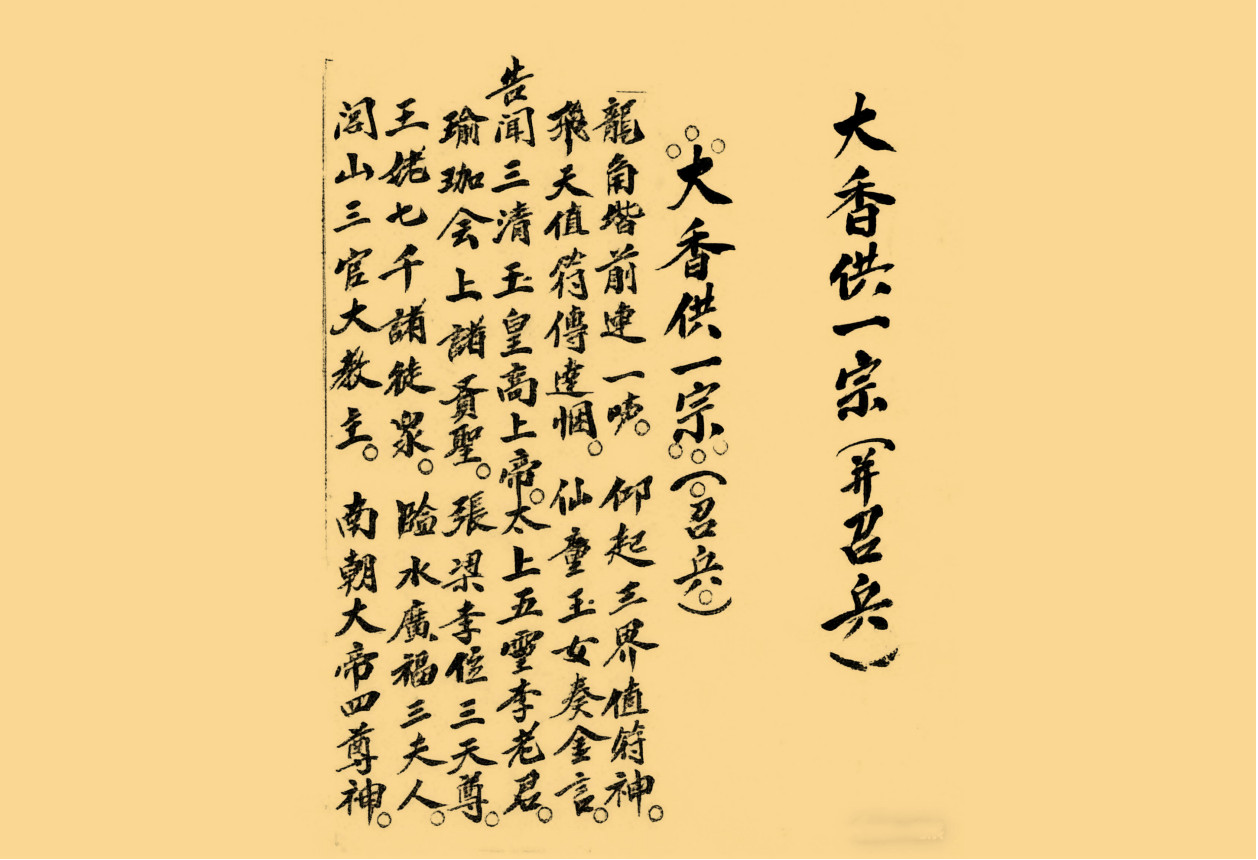 大香供一宗(并召兵)
大香供一宗(召兵)
龍角堦前連一吹。仰起三界值符神。
飛天值符傳達悃。仙童玉女奏金言。
告聞三清玉皇高上帝。太上五靈李老君。
瑜珈会上諸賢聖。張梁李位三天尊。
王姥七千諸徒眾。臨水廣福三夫人。
閭山三官大教主。南朝大帝四尊神。